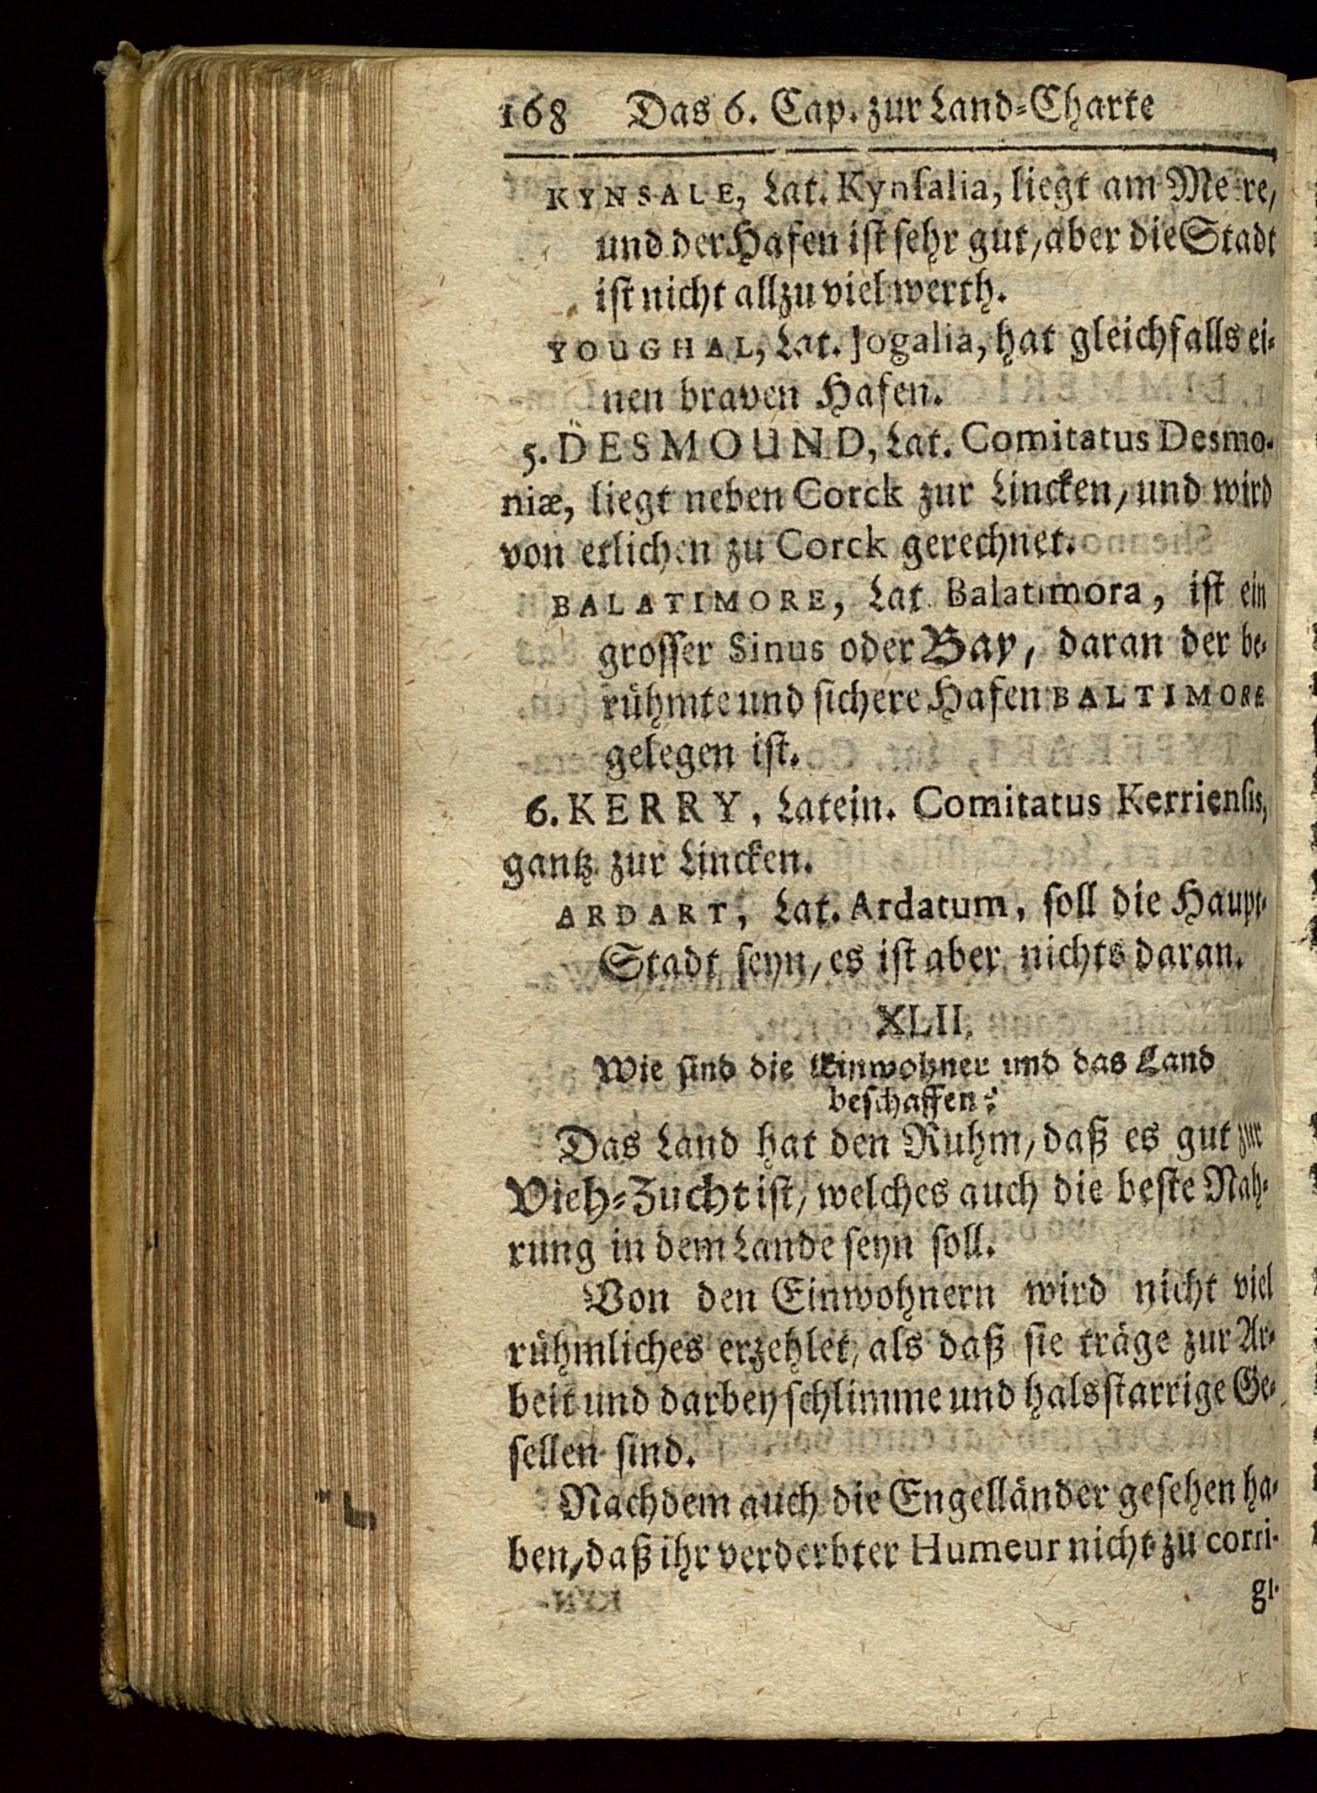 168 Das 6. Cap. zur Land-Charte
KYNSALE, Lat. Kynsalia, liegt am Meere,
und der Hafen ist sehr gut, aber die Stadt
ist nicht allzu viel werth.
YOUGHAL, Lat. Jogalia, hat gleichfalls ei-
nen braven Hafen.
5. DESMOUND, Lat. Comitatus Desmo-
niæ, liegt neben Corck zur Lincken, und wird
von etlichen zu Corck gerechnet.
BALATIMORE, Lat. Balatimora, ist ein
grosser Sinus oder Bay, daran der be-
rühmte und sichere Hafen BALTIMORE
gelegen ist.
6. KERRY, Latein. Comitatus Kerriensis,
gantz zur Lincken.
ARDART, Lat. Ardatum, soll die Haupt-
Stadt seyn, es ist aber nichts daran.
XLII.
Wie sind die Einwohner und das Land
beschaffen?
Das Land hat den Ruhm, daß es gut zur
Vieh-Zucht ist, welches auch die beste Nah-
rung in dem Lande seyn soll.
Von den Einwohnern wird nicht viel
rühmliches erzehlet, als daß sie träge zur Ar-
beit und darbey schlimme und halsstarrige Ge-
sellen sind.
Nachdem auch die Engelländer gesehen ha-
ben, daß ihr verderbter Humeur nicht zu corri-
gi-